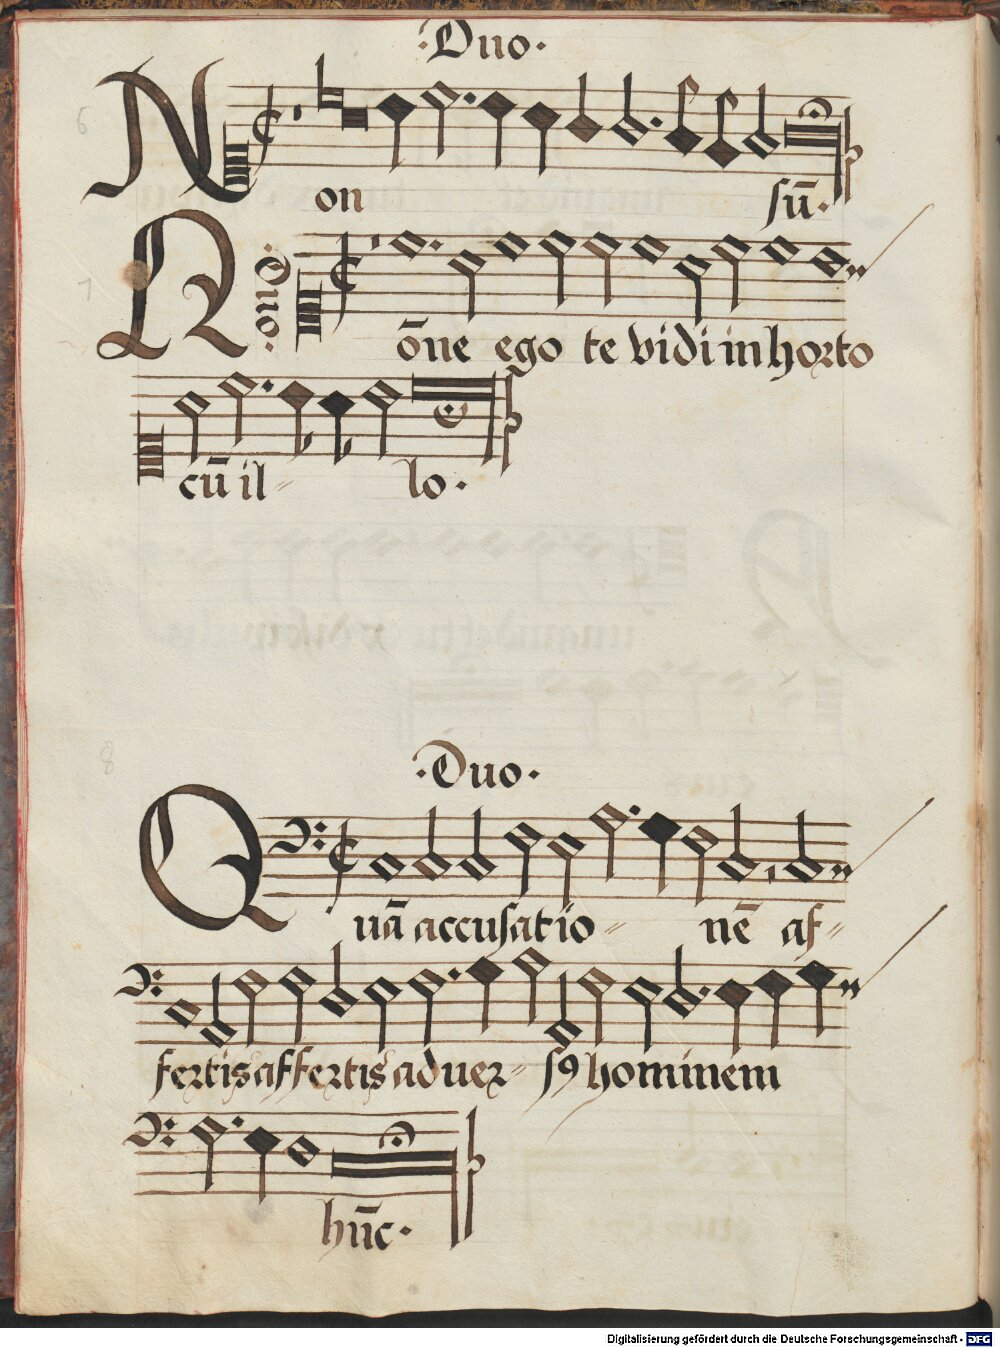 ·Duo·
6
Non sū·
·Duo·
7
Nōne ego te vidi in horto
cū il= lo·
8
·Duo·
Quā accusatio= nē af=
fertis affertis aduer= sꝯ hominem
hūc·
Digitalisierung gefördert durch die Deutsche Forschungsgemeinschaft - DFG